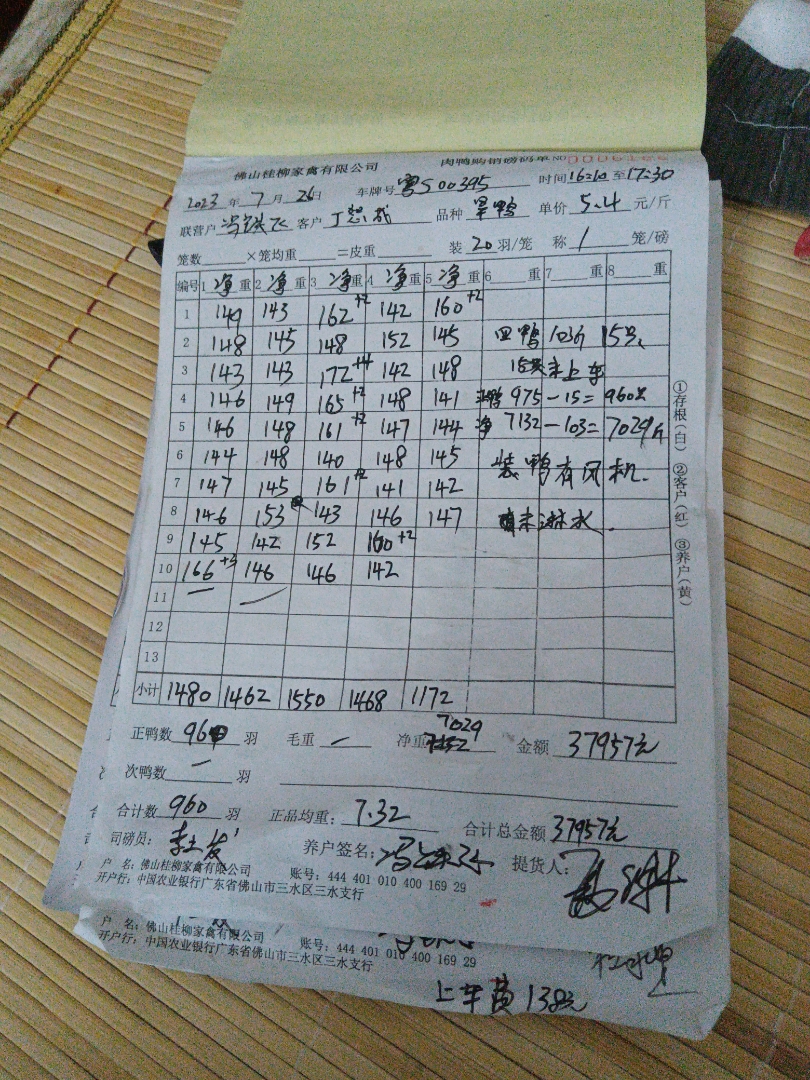 佛山桂柳家禽有限公司 肉鸭购销磅码单 NO
2023 年 7 月 26 日 车牌号 S00395 时间 16:10 至 17:30
联营户 客户 品种 旱鸭 单价 5.4 元/斤
笼数 ×笼均重 =皮重 装 20 羽/笼 称 1 笼/磅
编号 1 净 重 2 净 重 3 净 重 4 净 重 5 净 重 6 重 7 重 8 重
1 149 143 162+2 142 160+2
2 148 145 148 152 145 回鸭 103斤 15只
3 143 143 172+4 142 148 15只未上车
4 146 149 165+2 148 141 975-15=960只
5 146 148 161+2 147 144 净 7132-103=7029斤
6 144 148 140 148 145 装鸭有风机.
7 147 145 161+2 141 142
8 146 153 143 146 147 未淋水.
9 145 142 152 160+2
10 166+3 146 146 142
11 — —
12
13
小计 1480 1462 1550 1468 1172
①存根(白) ②客户(红) ③养户(黄)
正鸭数 960 羽 毛重 — 净重 7029 金额 37957元
次鸭数 — 羽
合计数 960 羽 正品均重: 7.32 合计总金额 37957元
司磅员: 养户签名: 提货人:
户 名: 佛山桂柳家禽有限公司 账号: 444 401 010 400 169 29
开户行: 中国农业银行广东省佛山市三水区三水支行
户 名: 佛山桂柳家禽有限公司 账号: 444 401 010 400 169 29
开户行: 中国农业银行广东省佛山市三水区三水支行
上车费 138元